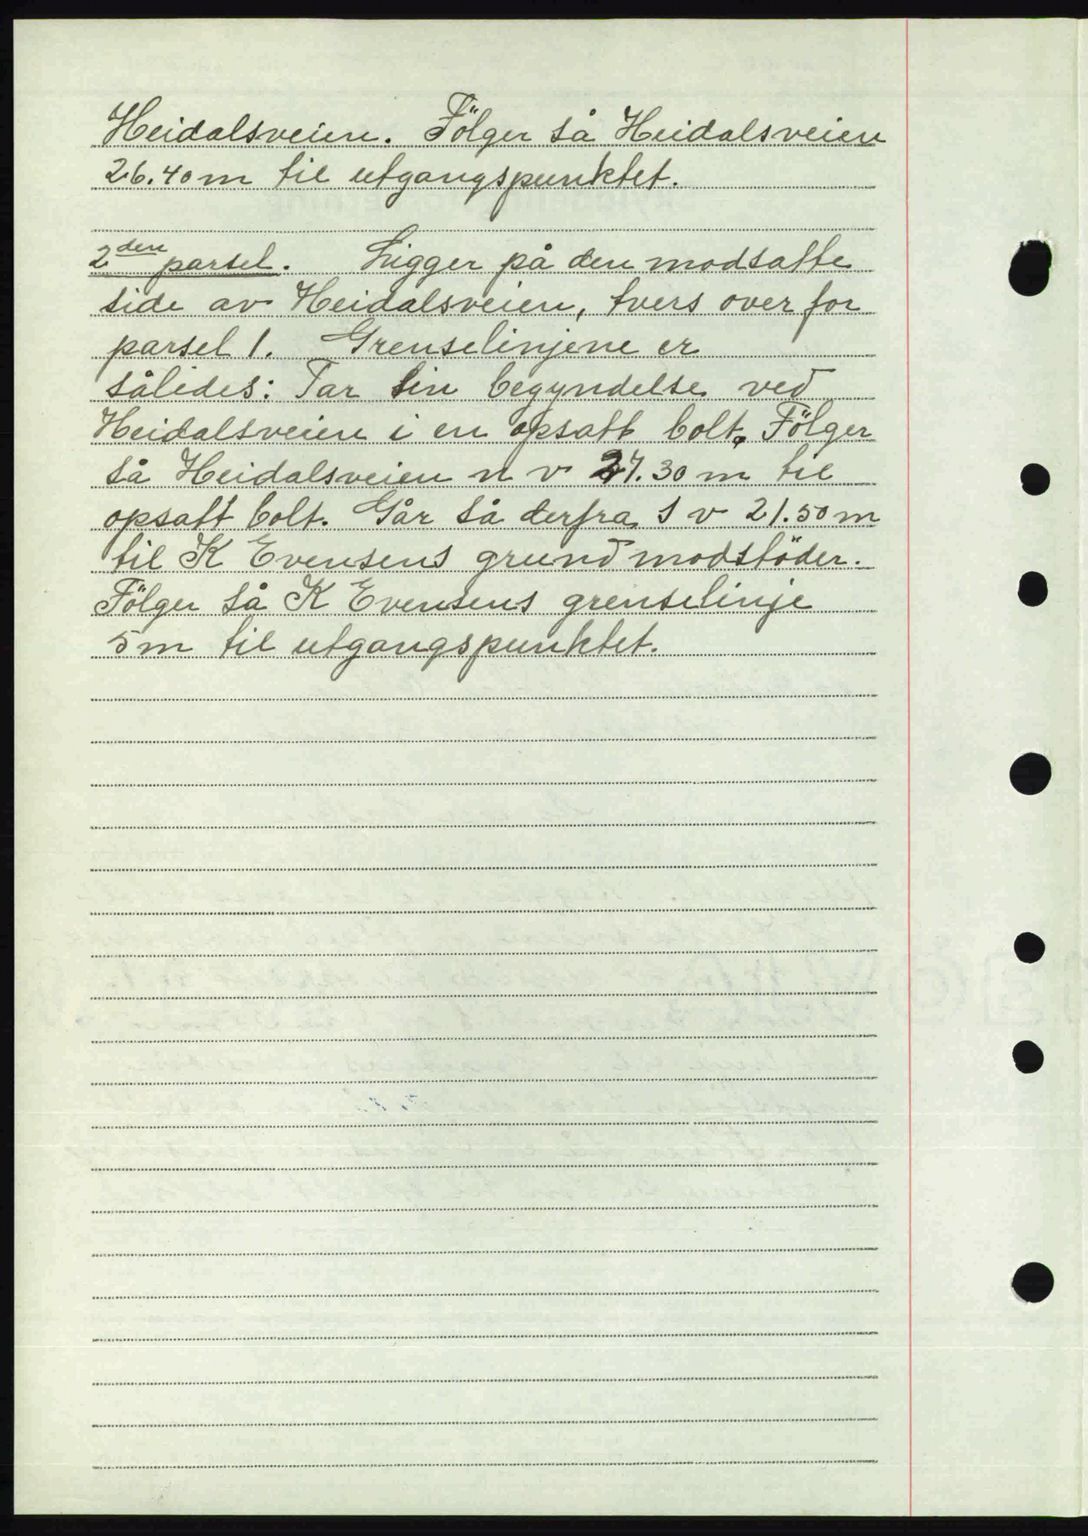 Heidalsveien. Fölger så Heidalsveien
26.40 m til utgangspunktet.
2den parsel. Ligger på den modsatte
side av Heidalsveien, tvers over for
parsel 1. Grenselinjene er
således: Tar sin begyndelse ved
Heidalsveien i en opsatt bolt. Fölger
så Heidalsveien n v 27.30 m til
opsatt bolt. Går så derfra s v 21.50 m
til K Evensens grund modstöder.
Fölger så K Evensens grenselinje
5 m til utgangspunktet.